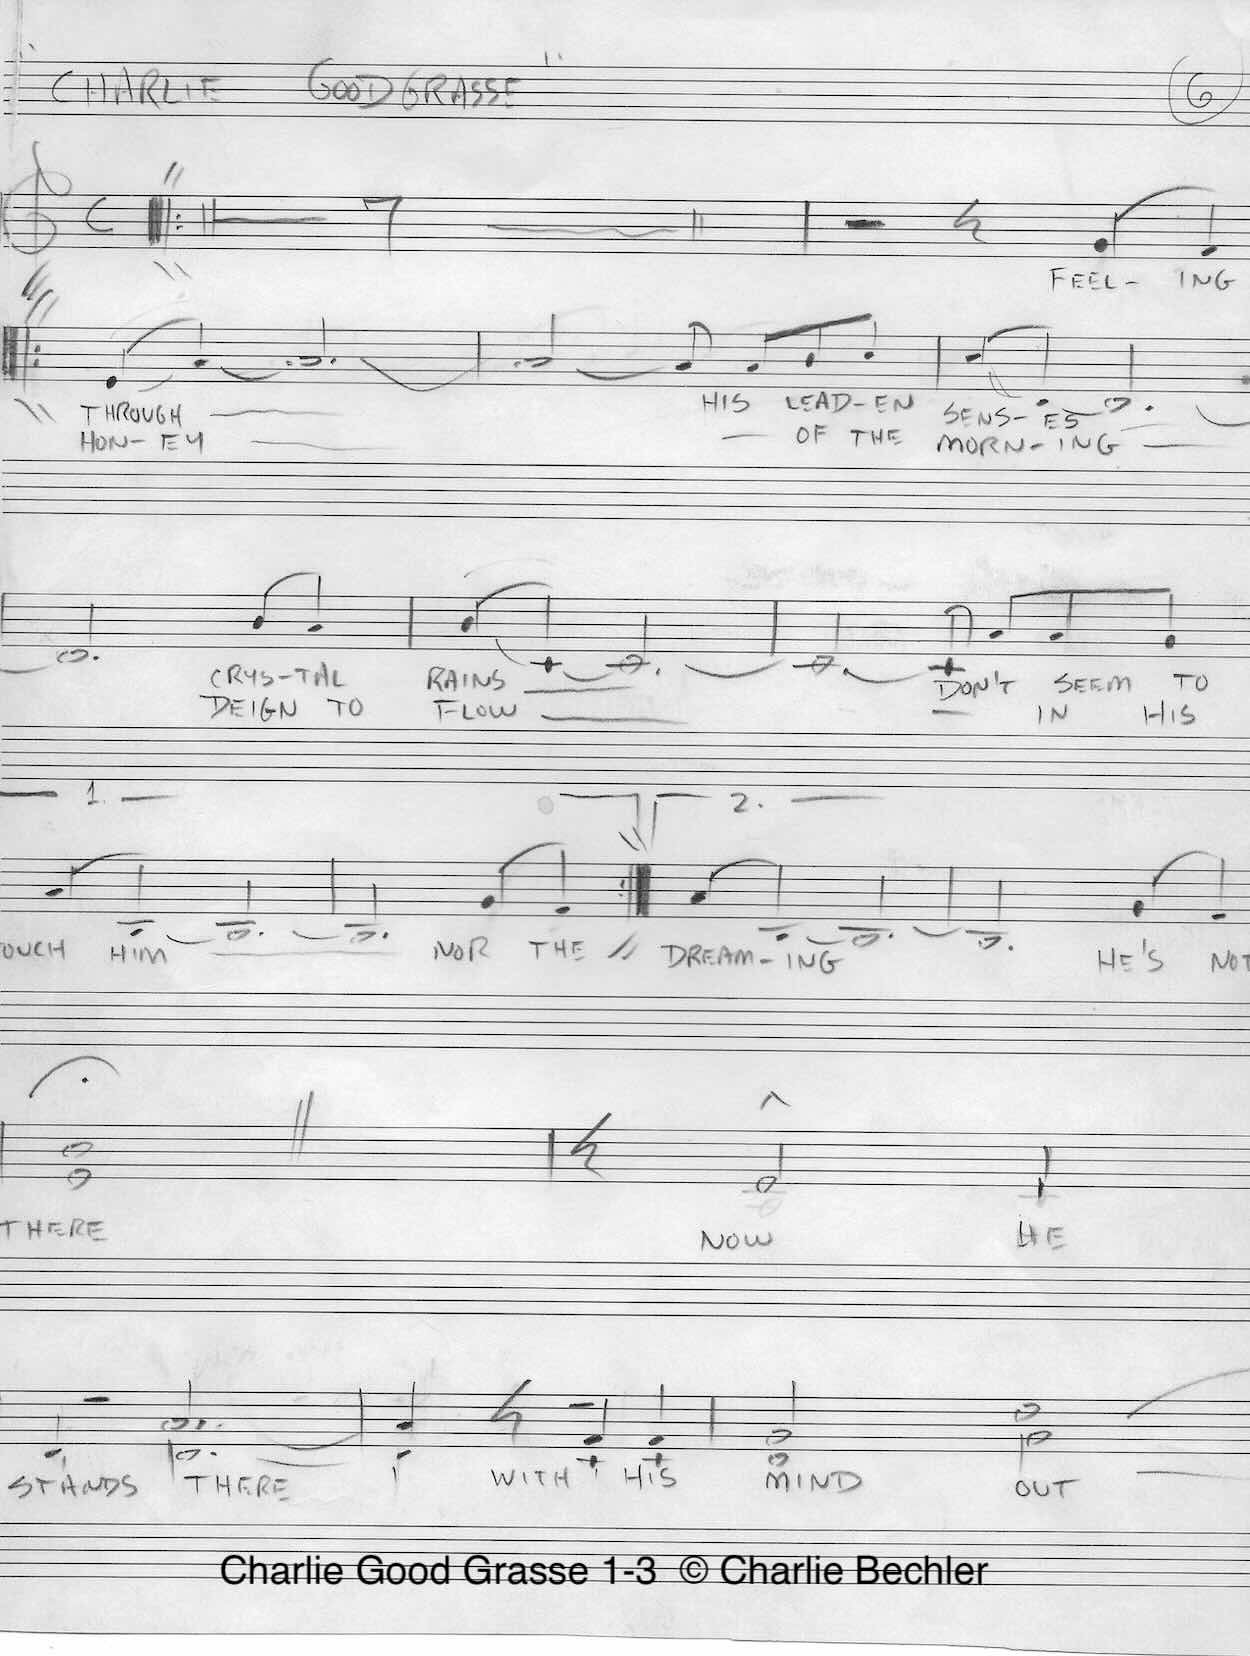 "CHARLIE GOODGRASSE" 6
7
FEEL- ING
THROUGH HIS LEAD-EN SENS-ES
HON-EY OF THE MORN-ING
CRYS-TAL RAINS DON'T SEEM TO
DEIGN TO FLOW IN HIS
1. 2.
OUCH HIM NOR THE // DREAM-ING HE'S NOT
THERE NOW HE
STANDS THERE WITH HIS MIND OUT
Charlie Good Grasse 1-3 © Charlie Bechler